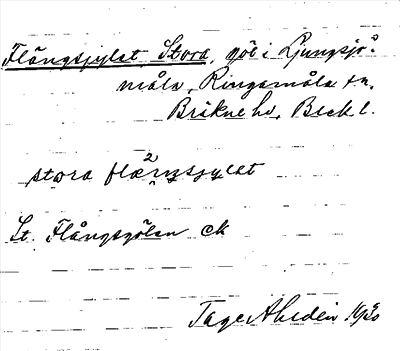 Flångsjylet Stora, göl i Ljungsjö-
måla, Ringamåla sn,
Bräkne hd, Blek l.
stora flæ²ŋsjylət
St. Flångsgölen ck
Tage Ahldén 1930